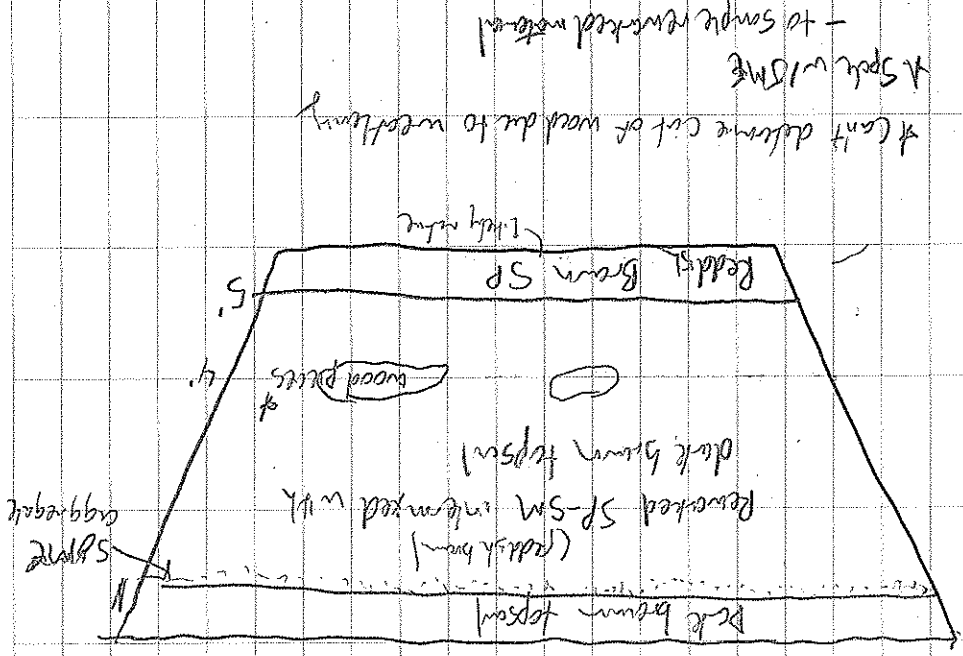 Dark brown topsoil
1'
some
aggregate
(reddish brown)
Reworked SP-SM intermixed with
dark brown topsoil
wood pieces *
4'
5'
Reddish Brown SP
Likely native
* Can't determine cut of wood due to weathering
* Spoke w/ SME
- to sample reworked material